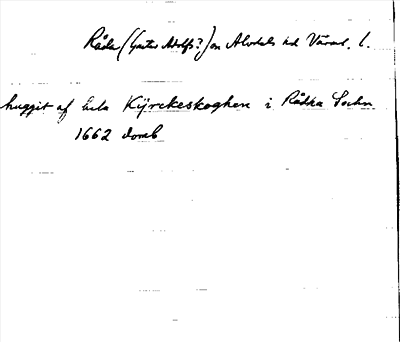 Råda (Gustav Adolfs?) sn Älvdals hd Värml. l.
huggit af hela Kijrckeskoghen i Rådha Sochn
1662 domb